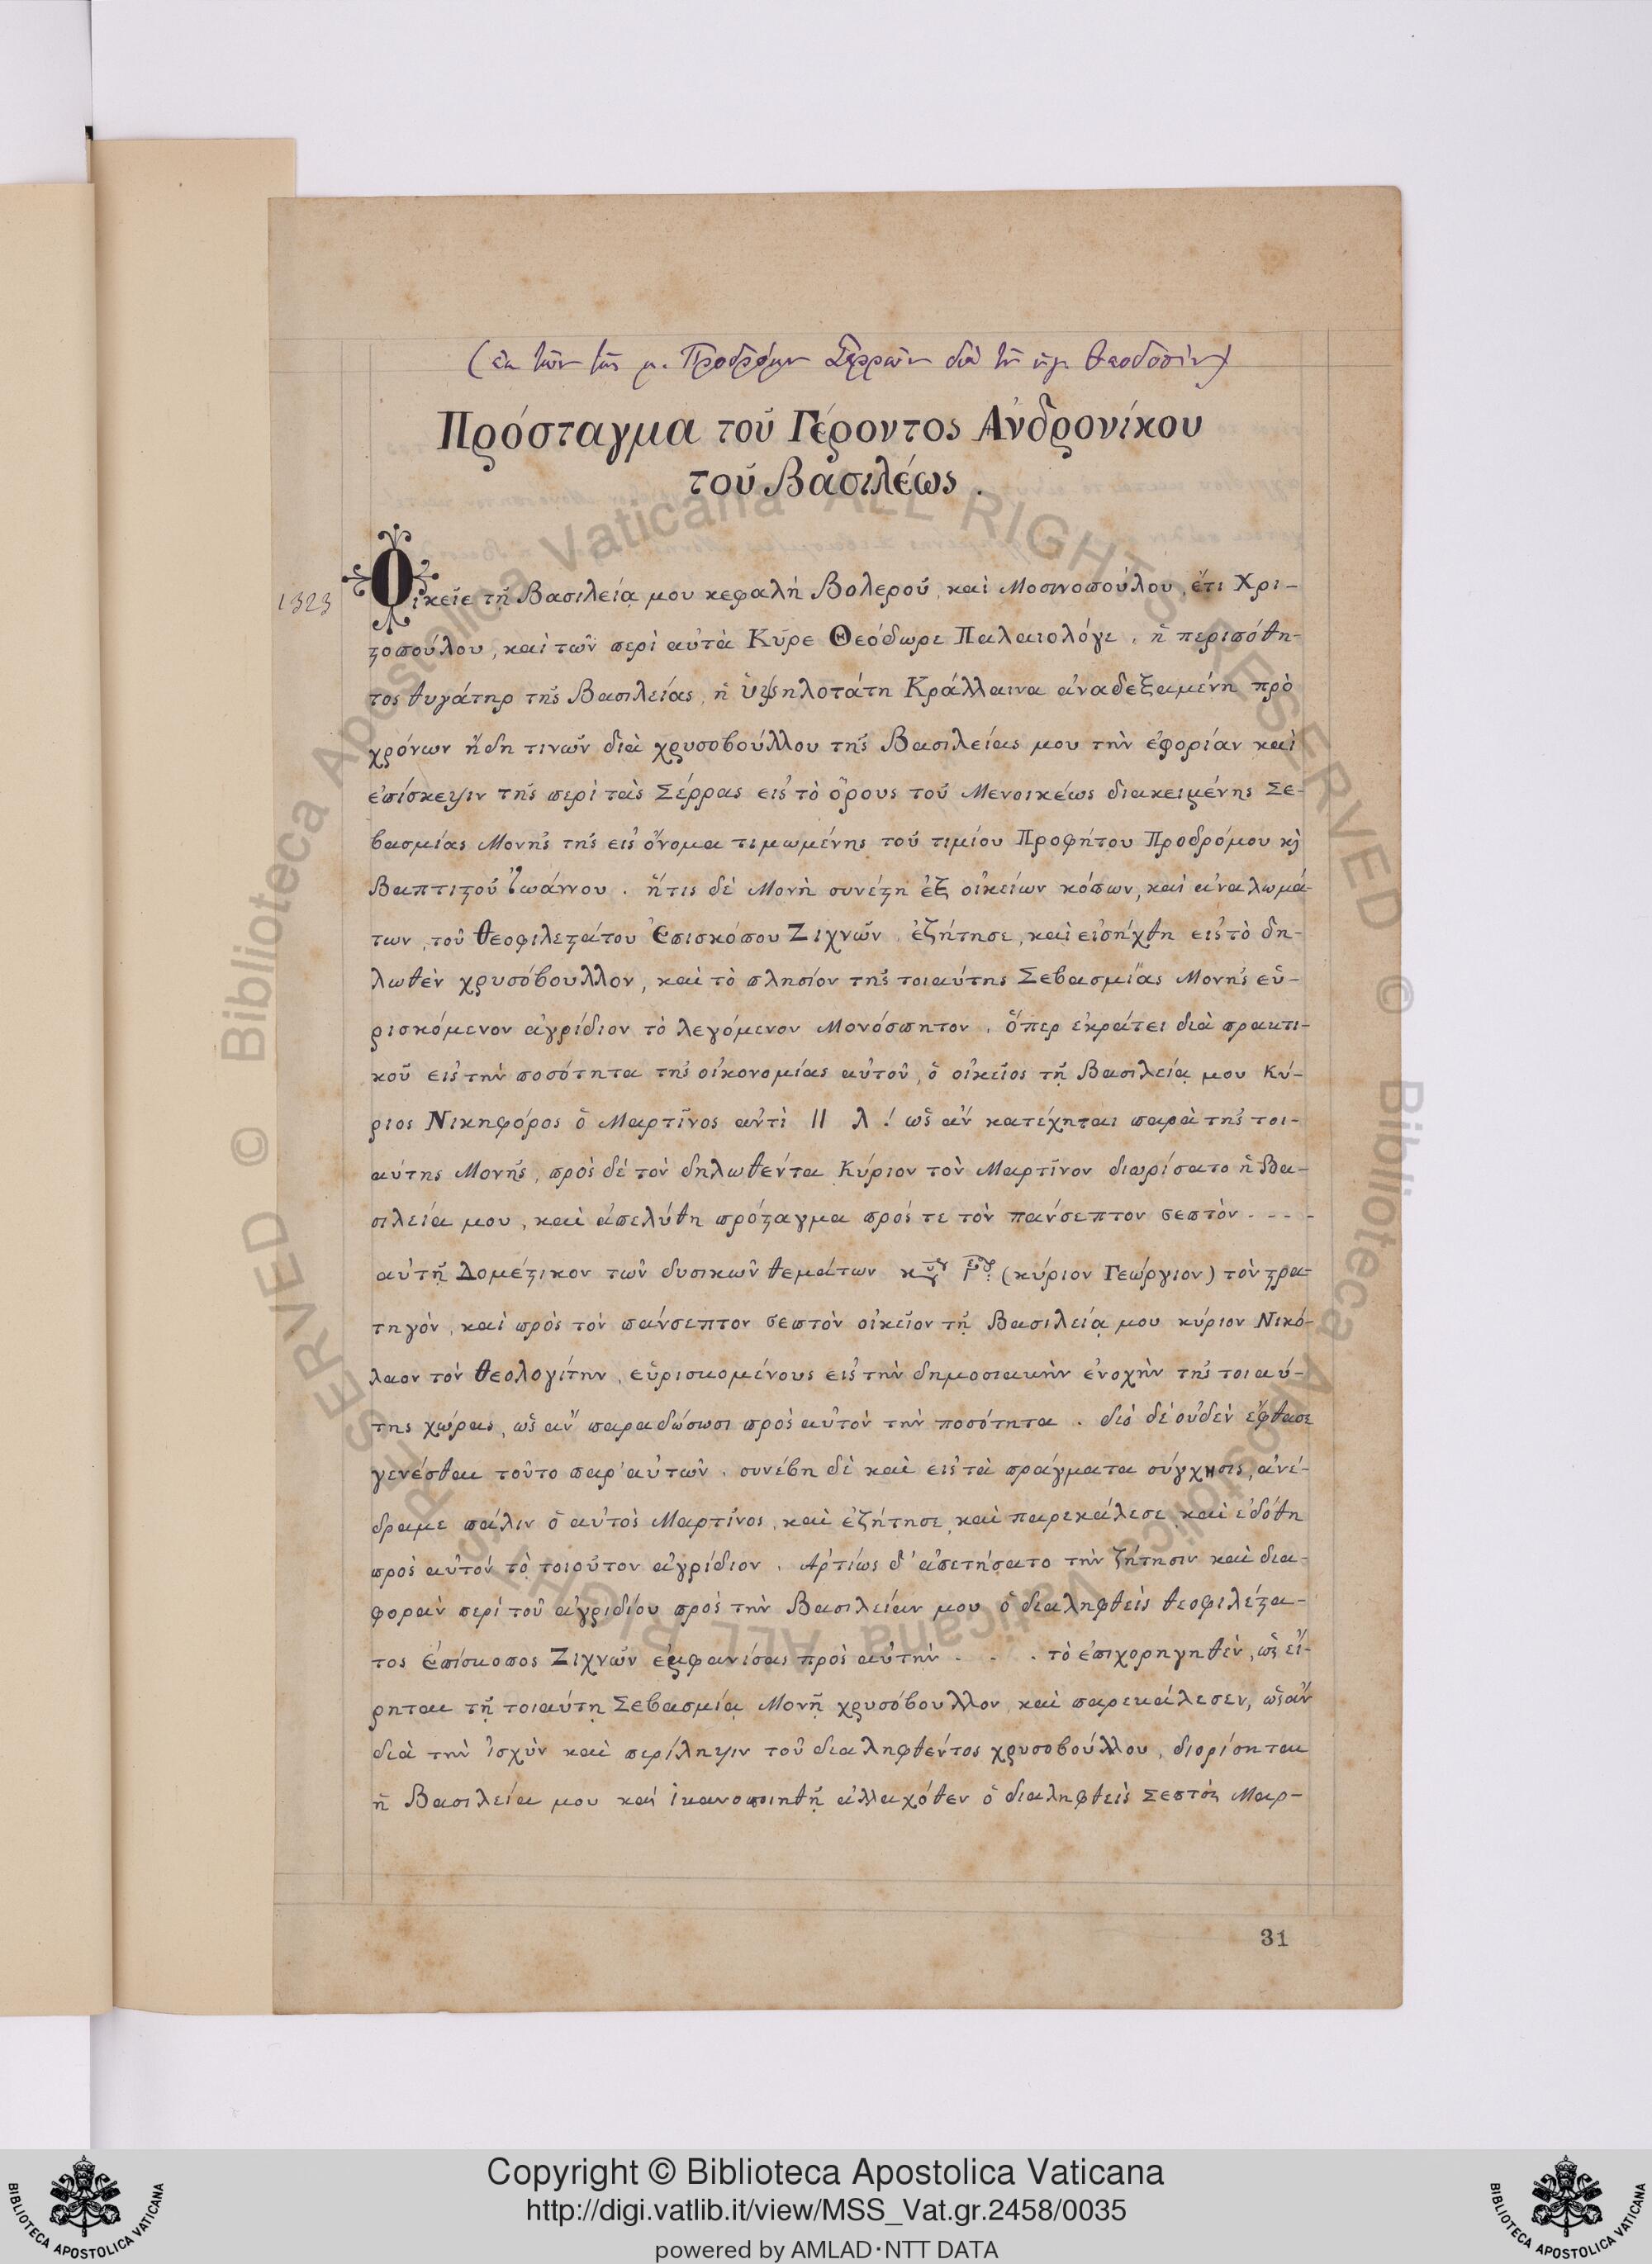 (ἐκ τῶν τῆς μ. Προδρόμου Σερρῶν διὰ τοῦ ἡγ. Θεοδοσίου)
Πρόσταγμα τοῦ Γέροντος Ἀνδρονίκου
τοῦ Βασιλέως.
1323
Οἰκεῖε τῇ Βασιλείᾳ μου κεφαλή Βολεροῦ, καὶ Μοσινοπούλου, ἔτι Χρι-
στοπούλου, καὶ τῶν περὶ αὐτὰ Κῦρε Θεόδωρε Παλαιολόγε, ἡ περιπόθη-
τος θυγάτηρ τῆς Βασιλείας, ἡ ὑψηλοτάτη Κράλλαινα ἀναδεξαμένη πρὸ
χρόνων ἤδη τινῶν διὰ χρυσοβούλλου τῆς Βασιλείας μου τὴν ἐφορίαν καὶ
ἐπίσκεψιν τῆς περὶ τὰς Σέρρας εἰς τὸ ὄρους τοῦ Μενοικέως διακειμένης Σε-
βασμίας Μονῆς τῆς εἰς ὄνομα τιμωμένης τοῦ τιμίου Προφήτου Προδρόμου κὶ
Βαπτιστοῦ Ἰωάννου. ἥτις δὲ Μονὴ συνέστη ἐξ οἰκείων κόπων, καὶ ἀναλωμά-
των, τοῦ θεοφιλεστάτου Ἐπισκόπου Ζιχνῶν, ἐζήτησε, καὶ εἰσήχθη εἰς τὸ δη-
λωθὲν χρυσόβουλλον, καὶ τὸ πλησίον τῆς τοιαύτης Σεβασμίας Μονῆς εὑ-
ρισκόμενον ἀγρίδιον τὸ λεγόμενον Μονόσπητον, ὅπερ ἐκράτει διὰ πρακτι-
κοῦ εἰς τὴν ποσότητα τῆς οἰκονομίας αὐτοῦ, ὁ οἰκεῖος τῇ Βασιλείᾳ μου Κύ-
ριος Νικηφόρος ὁ Μαρτῖνος ἀντὶ || λ! ὡς ἀν κατέχηται παρὰ τῆς τοι-
αύτης Μονῆς, πρὸς δέ τὸν δηλωθέντα Κύριον τὸν Μαρτῖνον διωρίσατο ἡ Βα-
σιλεία μου, καὶ ἀπελύθη πρόσταγμα πρός τε τὸν πανσεπτον σεπτὸν - - - -
αὐτῇ Δομέστικον τῶν δυσικῶν θεμάτων (κύριον Γεώργιον) τὸν στρα-
τηγόν, καὶ πρὸς τὸν πάνσεπτον σεπτὸν οἰκεῖον τῇ Βασιλείᾳ μου κύριον Νικό-
λαον τὸν Θεολογίτην, εὑρισκομένους εἰς τὴν δημοσιακὴν ἐνοχὴν τῆς τοιαύ-
της χώρας, ὡς ἀν παραδώσωσι πρὸς αὐτὸν τὴν ποσότητα. διό δέ οὐδὲν ἔφθασε
γενέσθαι τοῦτο παρ' αὐτῶν, συνέβη δὲ καὶ εἰς τὰ πράγματα σύγχησις, ἀνέ-
δραμε πάλιν ὁ αὐτὸς Μαρτῖνος, καὶ ἐζήτησε, καὶ παρεκάλεσε, καὶ ἐδόθη
πρὸς αὐτόν τὸ τοιοῦτον ἀγρίδιον. Ἀρτίως δ' ἀπετήσατο τὴν ζήτησιν καὶ δια-
φορὰν περὶ τοῦ ἀγριδίου πρὸς τὴν Βασιλείαν μου ὁ διαληφθεὶς θεοφιλέστα-
τος Ἐπίσκοπος Ζιχνῶν ἐμφανίσας πρὸς αὐτὴν . . . τὸ ἐπιχορηγηθὲν, ὡς εἴ-
ρηται τῇ τοιαύτῃ Σεβασμίᾳ Μονῇ χρυσόβουλλον, καὶ παρεκάλεσεν, ὡς ἀν
διὰ τὴν ἰσχὺν καὶ περίληψιν τοῦ διαληφθέντος χρυσοβούλλου, διορίσηται
ἡ Βασιλεία μου καὶ ἱκανοποιηθῇ ἀλλαχόθεν ὁ διαληφθεὶς Σεπτὸς Μαρ-
31
Copyright © Biblioteca Apostolica Vaticana
http://digi.vatlib.it/view/MSS_Vat.gr.2458/0035
powered by AMLAD·NTT DATA
BIBLIOTECA APOSTOLICA VATICANA
BIBLIOTECA APOSTOLICA VATICANA
© Biblioteca Apostolica Vaticana ALL RIGHTS RESERVED
© Biblioteca Apostolica Vaticana ALL RIGHTS RESERVED